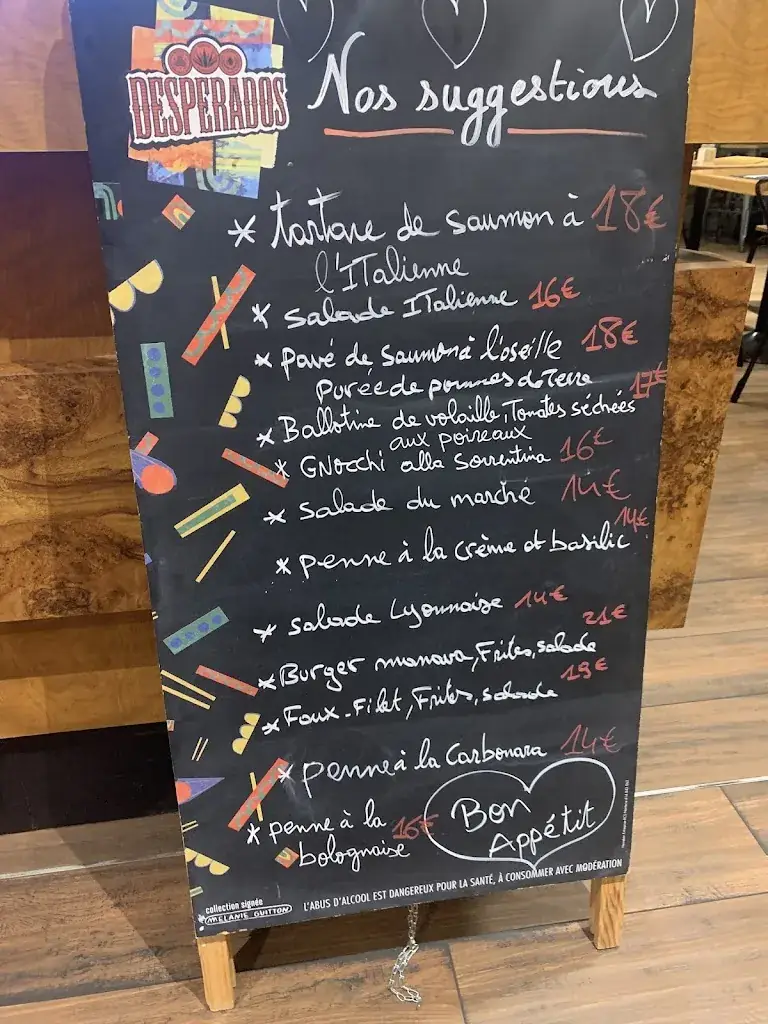 DESPERADOS
Nos suggestions
* tartare de saumon à 18€
l'ITalienne
* salade ITalienne 16€
* pavé de saumon à l'oseille 18€
purée de pommes de Terre
* Ballotine de volaille, Tomates séchées 17€
aux poireaux
* GNocchi alla Sorrentina 16€
* salade du marché 14€
* penne à la crème et basilic 14€
* salade Lyonnaise 14€
* Burger manava, Frites, salade 21€
* Faux-Filet, Frites, salade 19€
* penne à la Carbonara 14€
* penne à la 16€
bolognaise
Bon
Appétit
collection signée
MELANIE GUITTON
L'ABUS D'ALCOOL EST DANGEREUX POUR LA SANTÉ, À CONSOMMER AVEC MODÉRATION